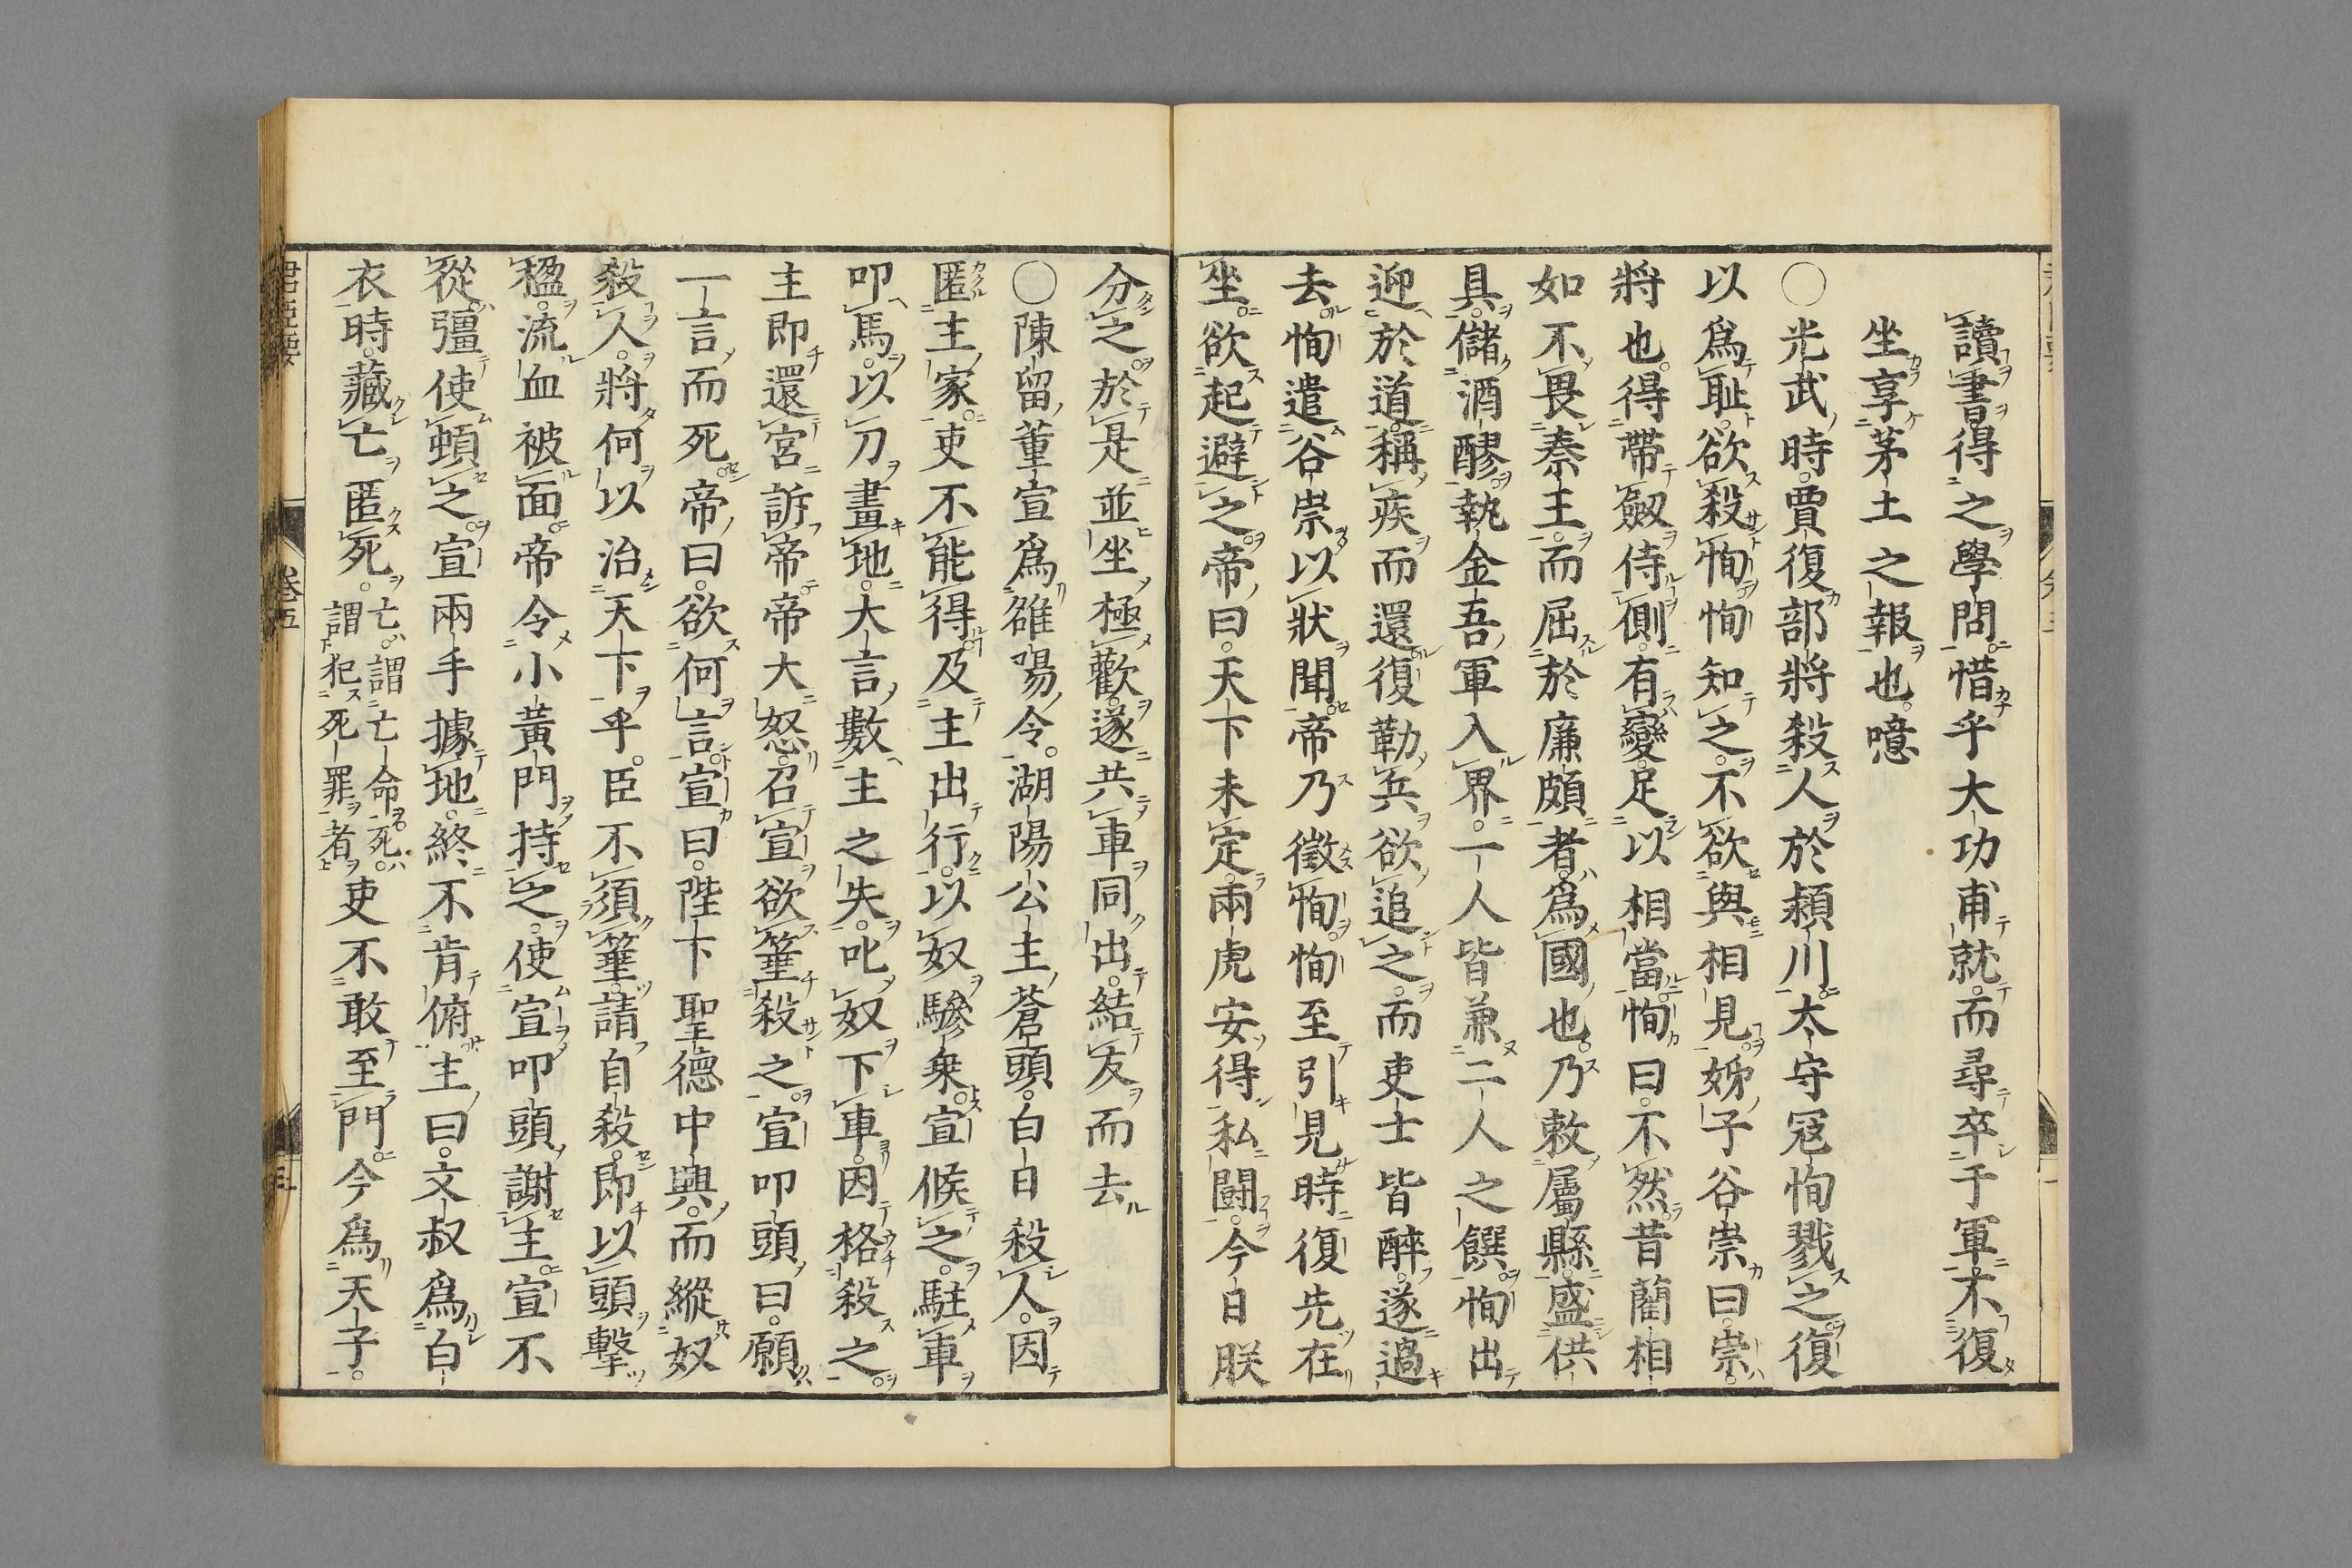 讀書得之學問惜乎大功甫就而尋卒于軍不復
坐享茅土之報也噫
○光武時賈復部將殺人於潁川太守寇恂戮之復
以爲恥欲殺恂恂知之不欲與相見姊子谷崇曰崇
將也得帶劔侍側有變足以相當恂曰不然昔藺相
如不畏秦王而屈於廉頗者爲國也乃敕屬縣盛供
具儲酒醪執金吾軍入界一人皆兼二人之饌恂出
迎於道稱疾而還復勒兵欲追之而吏士皆醉遂過
去恂遣谷崇以狀聞帝乃徵恂恂至引見時復先在
坐欲起避之帝曰天下未定兩虎安得私鬪今日朕
分之於是並坐極歡遂共車同出結友而去
○陳留董宣爲雒陽令湖陽公主蒼頭白日殺人因
匿主家吏不能得及主出行以奴驂乗宣候之駐車
叩馬以刀畫地大言數主之失叱奴下車因格殺之
主即還宮訴帝帝大怒召宣欲箠殺之宣叩頭曰願
一言而死帝曰欲何言宣曰陛下聖德中興而縱奴
殺人將何以治天下乎臣不須箠請自殺即以頭擊
楹流血被面帝令小黃門持之使宣叩頭謝主宣不
從彊使頓之宣兩手據地終不肯俯主曰文叔爲白
衣時藏亡匿死亡謂亡命死謂犯死罪者吏不敢至門今爲天子
卷五